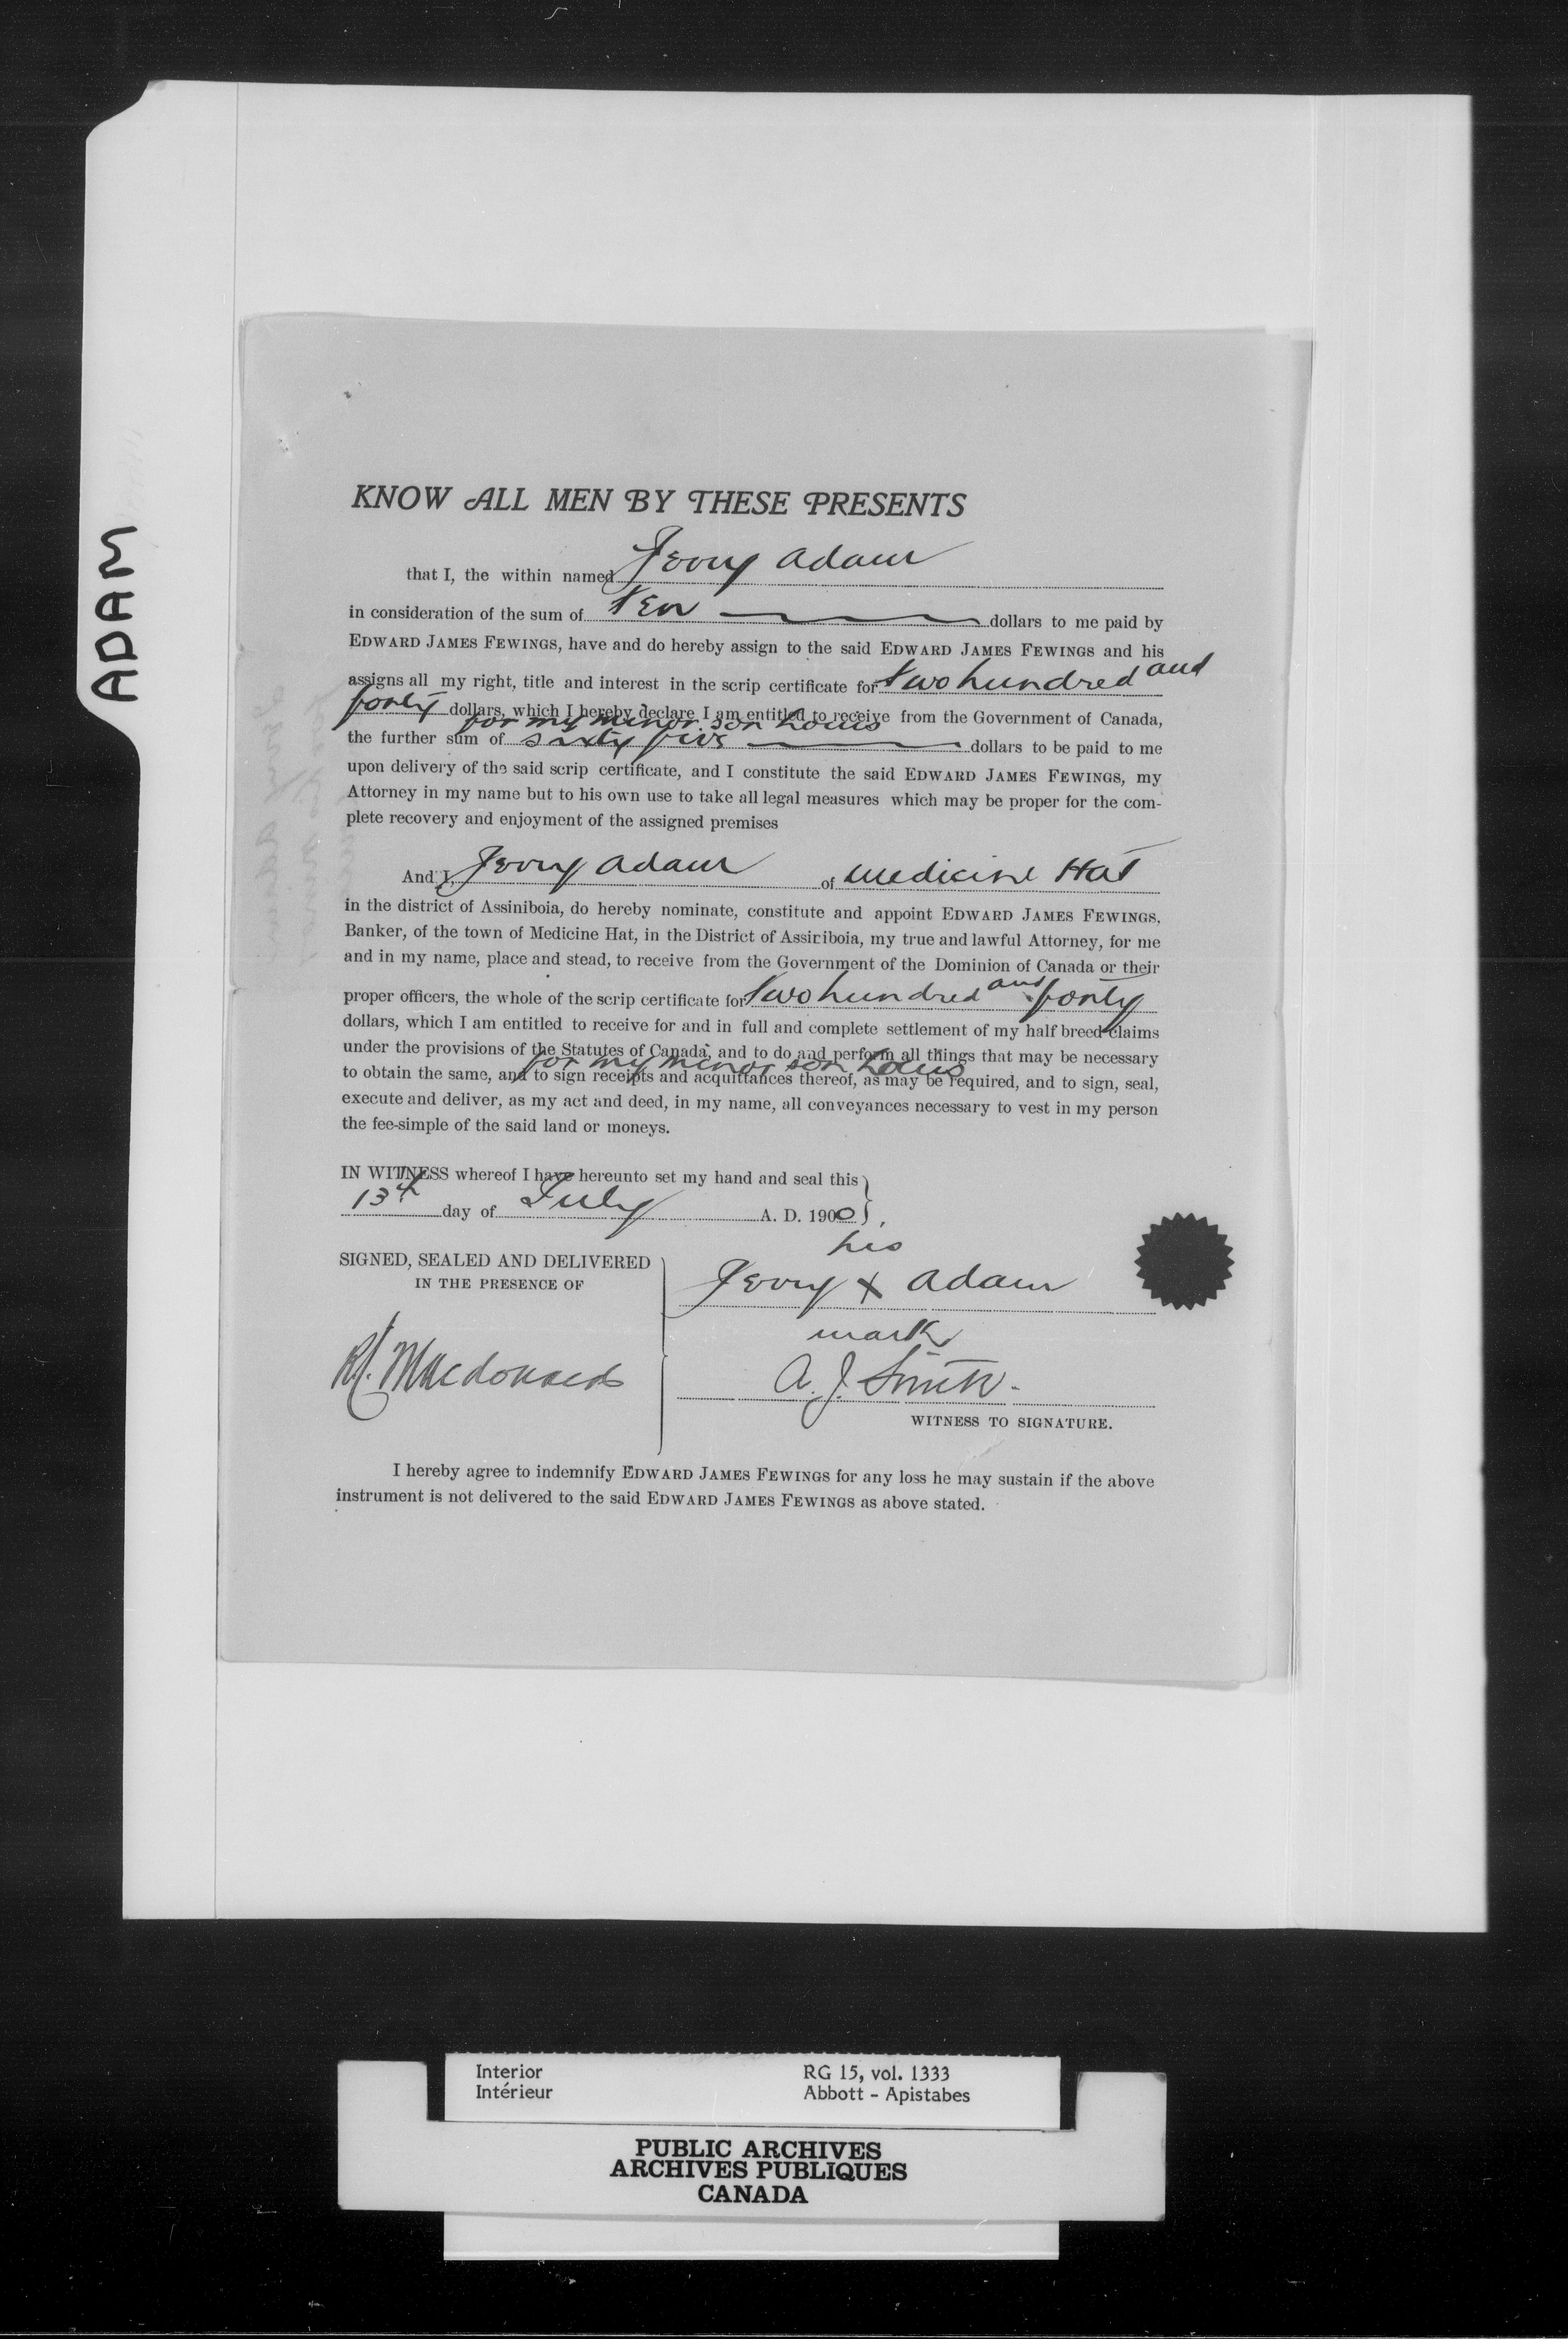 ADAM
KNOW ALL MEN BY THESE PRESENTS
that I, the within named Jerry Adam
in consideration of the sum of Ten dollars to me paid by
EDWARD JAMES FEWINGS, have and do hereby assign to the said EDWARD JAMES FEWINGS and his
assigns all my right, title and interest in the scrip certificate for two hundred and
forty dollars, which I hereby declare I am entitled to receive from the Government of Canada,
for my minor son Louis
the further sum of sixty five dollars to be paid to me
upon delivery of the said scrip certificate, and I constitute the said EDWARD JAMES FEWINGS, my
Attorney in my name but to his own use to take all legal measures which may be proper for the com-
plete recovery and enjoyment of the assigned premises
And I, Jerry Adam of Medicine Hat
in the district of Assiniboia, do hereby nominate, constitute and appoint EDWARD JAMES FEWINGS,
Banker, of the town of Medicine Hat, in the District of Assiniboia, my true and lawful Attorney, for me
and in my name, place and stead, to receive from the Government of the Dominion of Canada or their
proper officers, the whole of the scrip certificate for two hundred and forty
dollars, which I am entitled to receive for and in full and complete settlement of my half breed claims
under the provisions of the Statutes of Canada, and to do and perform all things that may be necessary
for my minor son Louis
to obtain the same, and to sign receipts and acquittances thereof, as may be required, and to sign, seal,
execute and deliver, as my act and deed, in my name, all conveyances necessary to vest in my person
the fee-simple of the said land or moneys.
IN WITNESS whereof I have hereunto set my hand and seal this
13th day of July A. D. 1900
SIGNED, SEALED AND DELIVERED
IN THE PRESENCE OF
his
Jerry X Adam
mark
Macdonald
A. J. Smith.
WITNESS TO SIGNATURE.
I hereby agree to indemnify EDWARD JAMES FEWINGS for any loss he may sustain if the above
instrument is not delivered to the said EDWARD JAMES FEWINGS as above stated.
Interior RG 15, vol. 1333
Intérieur Abbott - Apistabes
PUBLIC ARCHIVES
ARCHIVES PUBLIQUES
CANADA